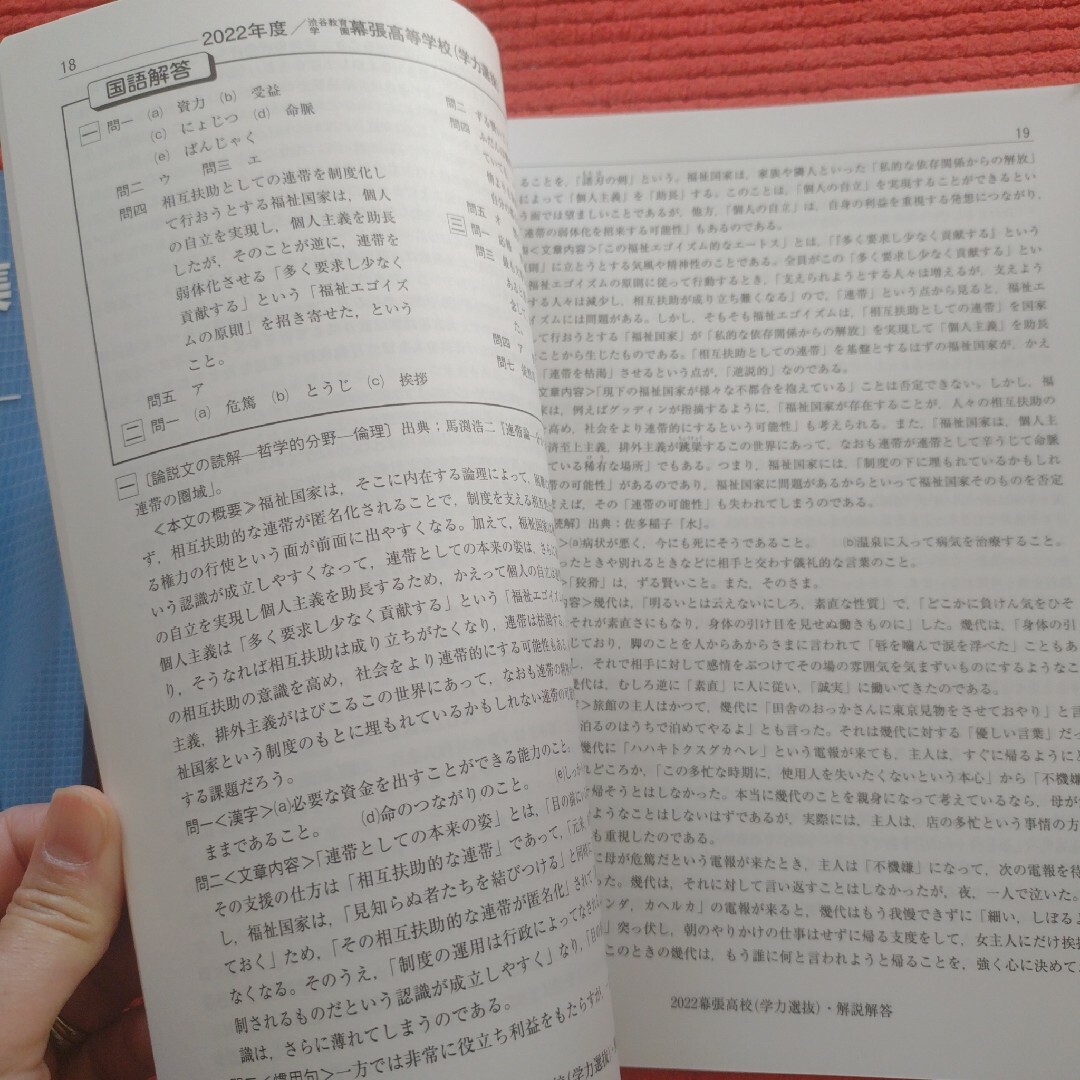 18
2022年度/渋谷教育学園幕張高等学校(学力選抜
国語解答
一 問一 (a) 資力 (b) 受益
(c) にょじつ (d) 命脈
(e) ばんじゃく
問二 ウ 問三 エ
問四 相互扶助としての連帯を制度化し
て行おうとする福祉国家は，個人
の自立を実現し，個人主義を助長
したが，そのことが逆に，連帯を
弱体化させる「多く要求し少なく
貢献する」という「福祉エゴイズ
ムの原則」を招き寄せた，という
こと。
問五 ア
二 問一 (a) 危篤 (b) とうじ (c) 挨拶
問二
問四
問五 オ
三 問一
問三
問四 ア
問七
一 〔論説文の読解―哲学的分野―倫理〕出典；馬渕浩二『連帯論
連帯の圏域」。
＜本文の概要＞福祉国家は，そこに内在する論理によって，
ず，相互扶助的な連帯が匿名化されることで，制度を支える相互
る権力の行使という面が前面に出やすくなる。加えて，福祉国家
いう認識が成立しやすくなって，連帯としての本来の姿は，さら
の自立を実現し個人主義を助長するため，かえって個人の自立
個人主義は「多く要求し少なく貢献する」という「福祉エゴイズム
り，そうなれば相互扶助は成り立ちがたくなり，連帯は枯渇する
の相互扶助の意識を高め，社会をより連帯的にする可能性もある
主義，排外主義がはびこるこの世界にあって，なおも連帯の
祉国家という制度のもとに埋もれているかもしれない連帯の可能
する課題だろう。
問一＜漢字＞(a)必要な資金を出すことができる能力のこと。
ままであること。 (d)命のつながりのこと。 (e)しっか
問二＜文章内容＞「連帯としての本来の姿」とは，「目の前に
その支援の仕方は「相互扶助的な連帯」であって，「元来
し，福祉国家は，「見知らぬ者たちを結びつける」と同時に
ておく」ため，「その相互扶助的な連帯が匿名化」されて
なくなる。そのうえ，「制度の運用は行政によってなされ
制されるものだという認識が成立しやすく」なり，「目の
識は，さらに薄れてしまうのである。
問三＜慣用句＞一方では非常に役立ち利益をもたらすが，
校(学力選抜)・
19
ることを，「諸刃の剣」という。福祉国家は，家族や隣人といった「私的な依存関係からの解放」
によって「個人主義」を「助長」する。このことは，「個人の自立」を実現することができるとい
う面では望ましいことであるが，他方，「個人の自立」は，自身の利益を重視する発想につながり，
「連帯の弱体化を招来する可能性」もあるのである。
＜文章内容＞「この福祉エゴイズム的なエートス」とは，「『多く要求し少なく貢献する』という
則」に立とうとする気風や精神性のことである。全員がこの「多く要求し少なく貢献する」とい
エゴイズムの原則に従って行動するとき，「支えられようとする人々は増えるが，支えよう
する人々は減少し，相互扶助が成り立ち難くなる」ので，「連帯」という点から見ると，福祉エ
イズムには問題がある。しかし，そもそも福祉エゴイズムは，「相互扶助としての連帯」を国家
して行おうとする「福祉国家」が「私的な依存関係からの解放」を実現して「個人主義」を助長
ことから生じたものである。「相互扶助としての連帯」を基盤とするはずの福祉国家が，かえ
「連帯を枯渇」させるという点が，「逆説的」なのである。
文章内容＞「現下の福祉国家が様々な不都合を抱えている」ことは否定できない。しかし，福
家は，例えばグッディンが指摘するように，「福祉国家が存在することが，人々の相互扶助の
高め，社会をより連帯的にするという可能性」も考えられる。また，「福祉国家は，個人主
済至上主義，排外主義が跳梁するこの世界にあって，なおも連帯が連帯として辛うじて命脈
ている稀有な場所」でもある。つまり，福祉国家には，「制度の下に埋もれているかもしれ
帯の可能性」があるのであり，福祉国家に問題があるからといって福祉国家そのものを否定
まえば，その「連帯の可能性」も失われてしまうのである。
読解〕出典；佐多稲子『水』。
＞(a)病状が悪く，今にも死にそうであること。 (b)温泉に入って病気を治療すること。
ったときや別れるときなどに相手と交わす儀礼的な言葉のこと。
＞「狡猾」は，ずる賢いこと。また，そのさま。
内容＞幾代は，「明るいとは云えないにしろ，素直な性質」で，「どこかに負けん気をひそ
それが素直さにもなり，身体の引け目を見せぬ働きものに」した。幾代は，「身体の引
じており，脚のことを人からあからさまに言われて「唇を噛んで涙を浮べた」こともあ
，それで相手に対して感情をぶつけてその場の雰囲気を気まずいものにするようなこ
代は，むしろ逆に「素直」に人に従い，「誠実」に働いてきたのである。
＞旅館の主人はかつて，幾代に「田舎のおっかさんに東京見物をさせておやり」と言
泊るのはうちで泊めてやるよ」とも言った。それは幾代に対する「優しい言葉」だっ
幾代に「ハハキトクスグカヘレ」という電報が来ても，主人は，すぐに帰るようにと
れどころか，「この多忙な時期に，使用人を失いたくないという本心」から「不機嫌
帰そうとはしなかった。本当に幾代のことを親身になって考えているなら，母が
ようなことはしないはずであるが，実際には，主人は，店の多忙という事情の方
も重視したのである。
に母が危篤だという電報が来たとき，主人は「不機嫌」になって，次の電報を待
た。幾代は，それに対して言い返すことはしなかったが，夜，一人で泣いた。
ンダ，カヘルカ」の電報が来ると，幾代はもう我慢できずに「細い，しぼるよ
突っ伏し，朝のやりかけの仕事はせずに帰る支度をして，女主人にだけ挨拶
このときの幾代は，もう誰に何と言われようと帰ることを，強く心に決めて
2022幕張高校(学力選抜)・解説解答